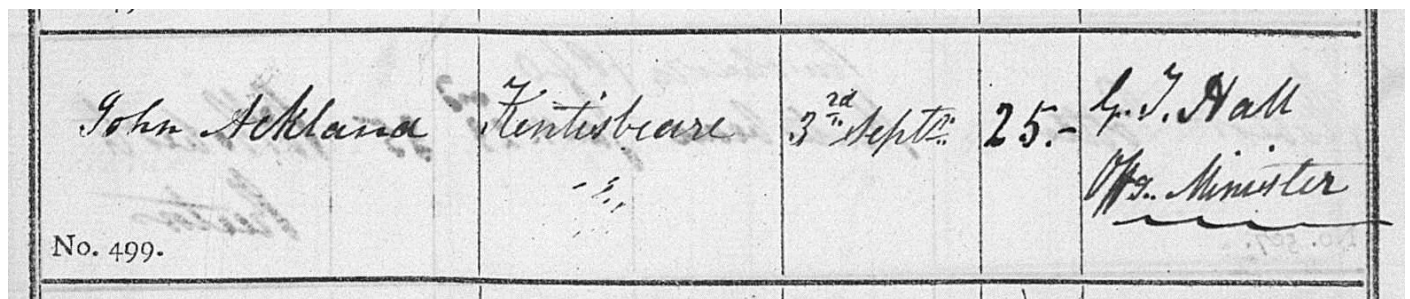 John Ackland
Kentisbeare
3rd Septr
25.-
G. T. Hall
Offg. Minister
No. 499.